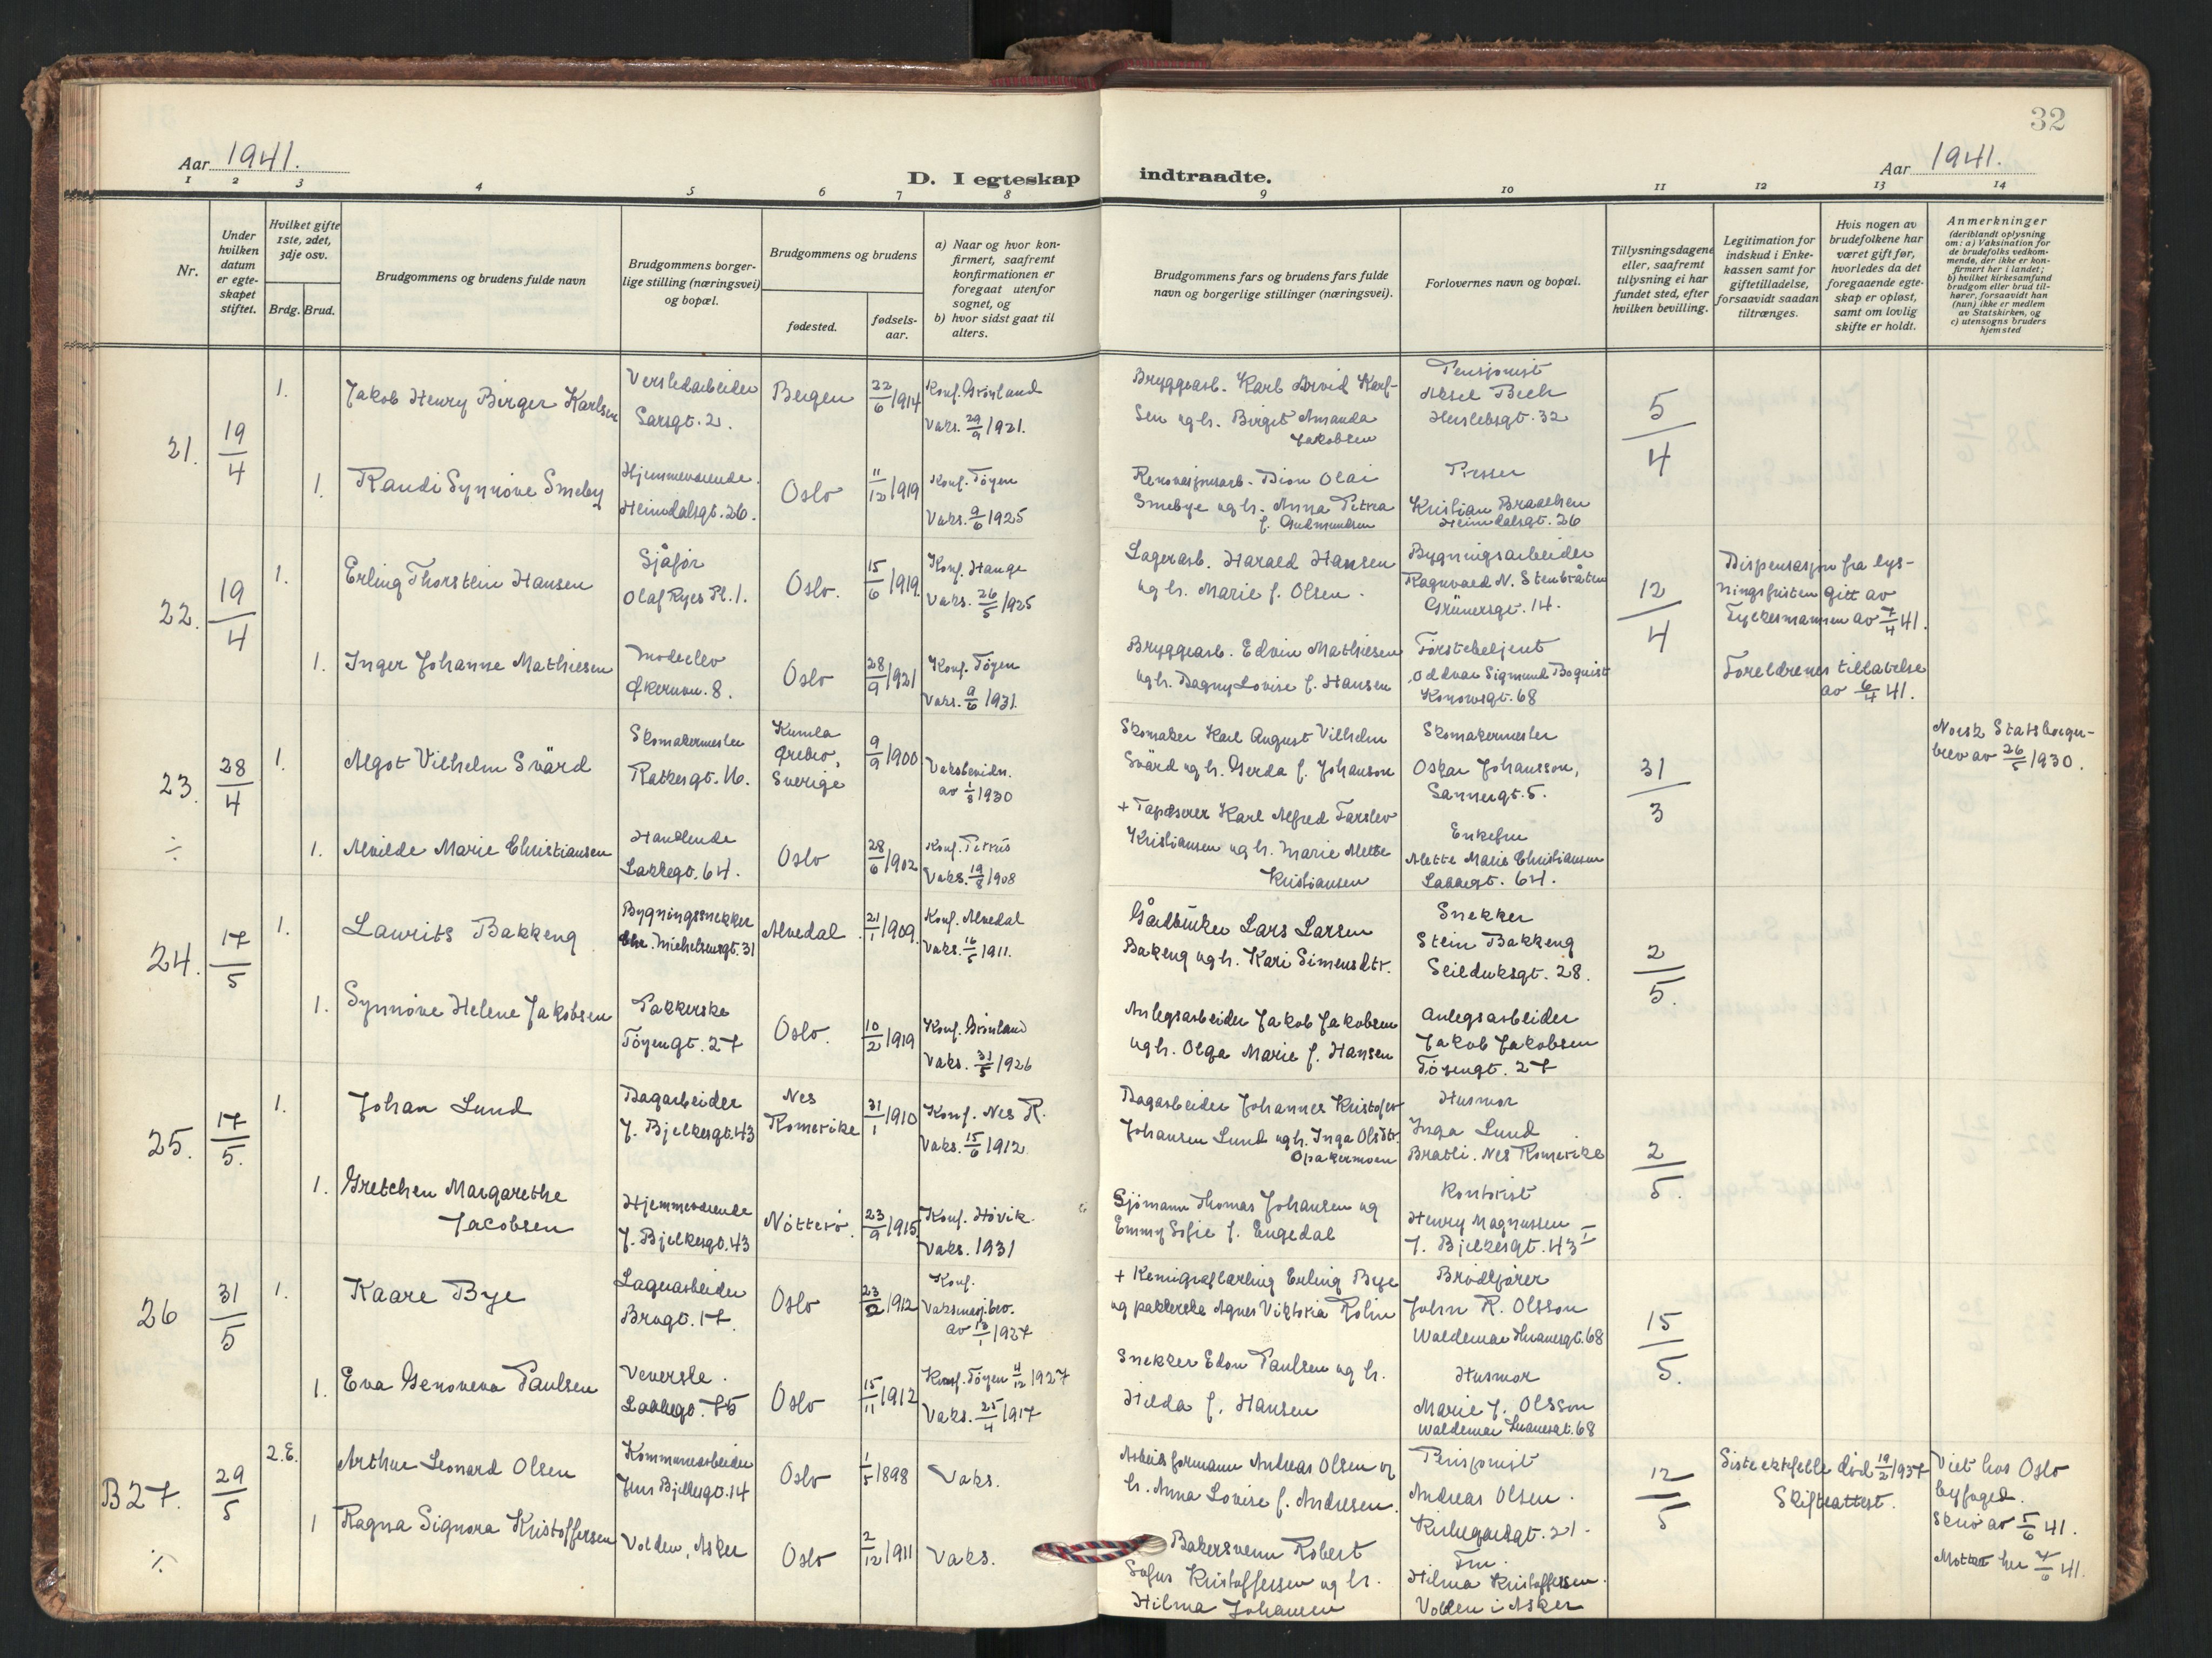 32
Aar 1941.
Aar 1941.
D. I egteskap indtraadte.
1 2 3 4 5 6 7 8 9 10 11 12 13 14
Nr.
Under hvilken datum er egteskapet stiftet.
Hvilket gifte 1ste, 2det, 3dje osv.
Brdg. Brud.
Brudgommens og brudens fulde navn
Brudgommens borgerlige stilling (næringsvei) og bopæl.
Brudgommens og brudens
fødested.
fødselsaar.
a) Naar og hvor konfirmert, saafremt konfirmationen er foregaat utenfor sognet, og
b) hvor sidst gaat til alters.
Brudgommens fars og brudens fars fulde navn og borgerlige stillinger (næringsvei).
Forlovernes navn og bopæl.
Tillysningsdagene eller, saafremt tillysning ei har fundet sted, efter hvilken bevilling.
Legitimation for indskud i Enkekassen samt for giftetilladelse, forsaavidt saadan tiltrænges.
Hvis nogen av brudefolkene har været gift før, hvorledes da det foregaaende egteskap er opløst, samt om lovlig skifte er holdt.
Anmerkninger
(deriblandt oplysning om: a) Vaksination for de brudefolks vedkommende, der ikke er konfirmert her i landet; b) hvilket kirkesamfund brudgom eller brud tilhører, forsaavidt han (hun) ikke er medlem av Statskirken, og c) utensogns bruders hjemsted
21. 19/4
1. Jakob Henry Birger Karlsen
Verkstedarbeider
Sarsgt. 2.
Bergen
22/6 1914
Konf. Grønland
Vaks. 29/9 1921.
Bryggearb. Karl Arvid Karlsen og h. Birgit Amanda Jakobsen
Pensjonist
Aksel Bech
Herslebsgt. 32
5/4
1. Randi Synnøve Smeby
Hjemmeværende.
Heimdalsgt. 26.
Oslo
11/12 1919
Konf. Tøyen
Vaks. 9/6 1925
Renovasjonsarb. Olai
Smebye og h. Anna Petra
f. Gudmundsen
Presser
Kristian Braathen
Heimdalsgt. 26
22. 19/4
1. Erling Thorstein Hansen
Sjåfør
Olaf Ryes Pl. 1.
Oslo.
15/6 1919
Konf. Hauge
Vaks. 26/5 1925
Lagerarb. Harald Hansen
og h. Marie f. Olsen.
Bygningsarbeider
Ragnvald N. Stenbråten
Grünersgt. 14.
12/4
Dispensasjon fra lys-
ningsfristen gitt av
Fylkesmannen av 7/4 41.
1. Inger Johanne Mathiesen
Modelev
Økernvn. 8.
Oslo
28/9 1921
Konf. Tøyen
Vaks. 9/6 1931.
Bryggearb. Edvin Mathiesen
og h. Dagny Lovise f. Hansen
Førstebetjent
Oddvar Sigmund Boquist
Konowsgt. 68
Foreldrenes tillatelse
av 6/4 41.
23. 28/4
1. Algot Vilhelm Svärd
Skomakermester
Ratkesgt. 16.
Kumla
Ørebro,
Sverige
9/9 1900
Vaksbevidn.
av 1/8 1930
Skomaker Karl August Vilhelm
Svärd og h. Gerda f. Johanson
Skomakermester
Oskar Johansson,
Sannergt. 5.
31/3
Norsk Statsborger-
brev av 26/5 1930.
÷
1. Alvilde Marie Christiansen
Handlende
Lakkegt. 64.
Oslo
28/6 1902
Konf. Petrus
Vaks. 19/8 1908
+ Tapetserer Karl Alfred
Kristiansen og h. Marie Mette
Kristiansen
Enkefru
Mette Marie Christiansen
Lakkegt. 64.
24. 17/5
1. Laurits Bakkeng
Bygningssnekker
Chr. Michelsensgt. 31
Alvedal
21/1 1909
Konf. Alvedal
Vaks. 16/5 1911.
Gårdbruker Lars Larsen
Bakeng og h. Kari Simensdtr.
Snekker
Stein Bakkeng
Seilduksgt. 28.
2/5.
1. Synnøve Helene Jakobsen
Pakkerske
Tøyengt. 27
Oslo.
10/2 1919
Konf. Grønland
Vaks. 31/5 1926
Anlegsarbeider Jakob Jakobsen
og h. Olga Marie f. Hansen
Anlegsarbeider
Jakob Jakobsen
Tøyengt. 27
25. 17/5.
1. Johan Lund
Dagarbeider
J. Bjelkesgt. 43
Nes
Romerike
31/1 1910
Konf. Nes R.
Vaks. 15/6 1912
Dagarbeider Johannes Kristofer
Johansen Lund og h. Inga Olsdtr.
Opakermoen
Husmor
Inga Lund
Bratli. Nes Romerike
2/5.
1. Gretchen Margarethe
Jacobsen
Hjemmeværende
J. Bjelkesgt. 43
Nøtterø.
23/9 1915
Konf. Høvik.
Vaks. 1931
Sjømann Thomas Johansen og
Emmy Sofie f. Engedal
Kontorist
Henry Magnussen
J. Bjelkesgt. 43 I
26 31/5
1. Kaare Bye
Lagerarbeider
Brugt. 17.
Oslo
23/2 1912
Konf.
Vaksinasj.bev.
av 13/1 1927
+ Kemigraflærling Erling Bye
og pakkerske Agnes Viktoria Rolin
Brødkjører
John R. Olsson
Waldemar Thranesgt. 68
15/5.
1. Eva Genoveva Paulsen
Veverske.
Lakkegt. 75
Oslo
15/11 1912
Konf. Tøyen 4/12 1927
Vaks. 25/4 1917
Snekker Edon Paulsen og h.
Hilda f. Hansen
Husmor
Marie J. Olsson
Waldemar Thranesgt. 68
B 27. 29/5
2.E. Arthur Leonard Olsen
Kommunearbeider
Jens Bjelkesgt. 14
Oslo
1/5 1898
Vaks.
Arbeidsformann Andreas Olsen og
h. Anna Lovise f. Andresen.
Pensjonist
Andreas Olsen.
Kirkegårdsgt. 21.
12/5
Siste ektefelle død 19/2 1937
Skifteattest.
Viet hos Oslo
byfoged.
Skriv av 5/6 41.
Mottatt her 7/6 41.
÷
1 Ragna Signora Kristoffersen
Volden, Asker
Oslo
2/12 1911
Vaks.
Bakersvenn Robert
Sofus Kristoffersen og h.
Hilma Johansen
Fru.
Hilma Kristoffersen.
Volden i Asker